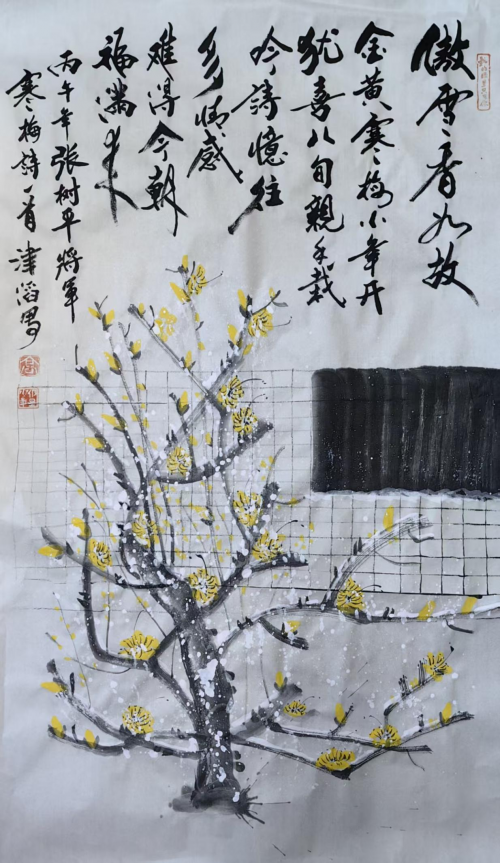 傲雪香如故
金黄寒梅小年开
犹喜八旬親手栽
吟詩憶往
多情感
难得今朝
福满来
丙午年张树平將軍
寒梅詩一首 津滔畧